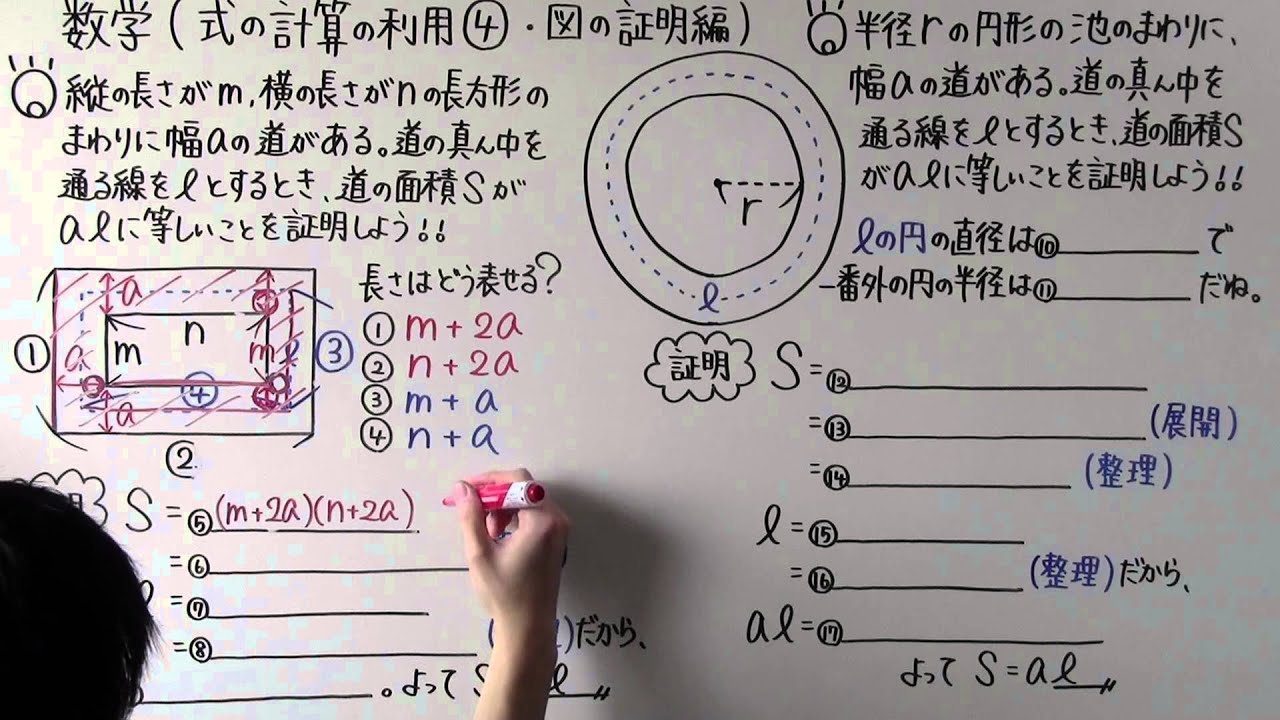 数学(式の計算の利用④・図の証明編)
縦の長さがm,横の長さがnの長方形の
まわりに幅aの道がある。道の真ん中を
通る線をℓとするとき、道の面積Sが
aℓに等しいことを証明しよう!!
①
②
③
④
a
a
a
n
m
m
ℓ
長さはどう表せる?
① m+2a
② n+2a
③ m+a
④ n+a
S=⑤(m+2a)(n+2a)
=⑥
=⑦
=⑧
だから、
。よって S
ℓ
半径rの円形の池のまわりに、
幅aの道がある。道の真ん中を
通る線をℓとするとき、道の面積S
がaℓに等しいことを証明しよう!!
r
ℓ
ℓの円の直径は⑩ で
一番外の円の半径は⑪ だね。
証明 S=⑫
=⑬ (展開)
=⑭ (整理)
ℓ=⑮
=⑯ (整理)だから、
aℓ=⑰
よって S=aℓ